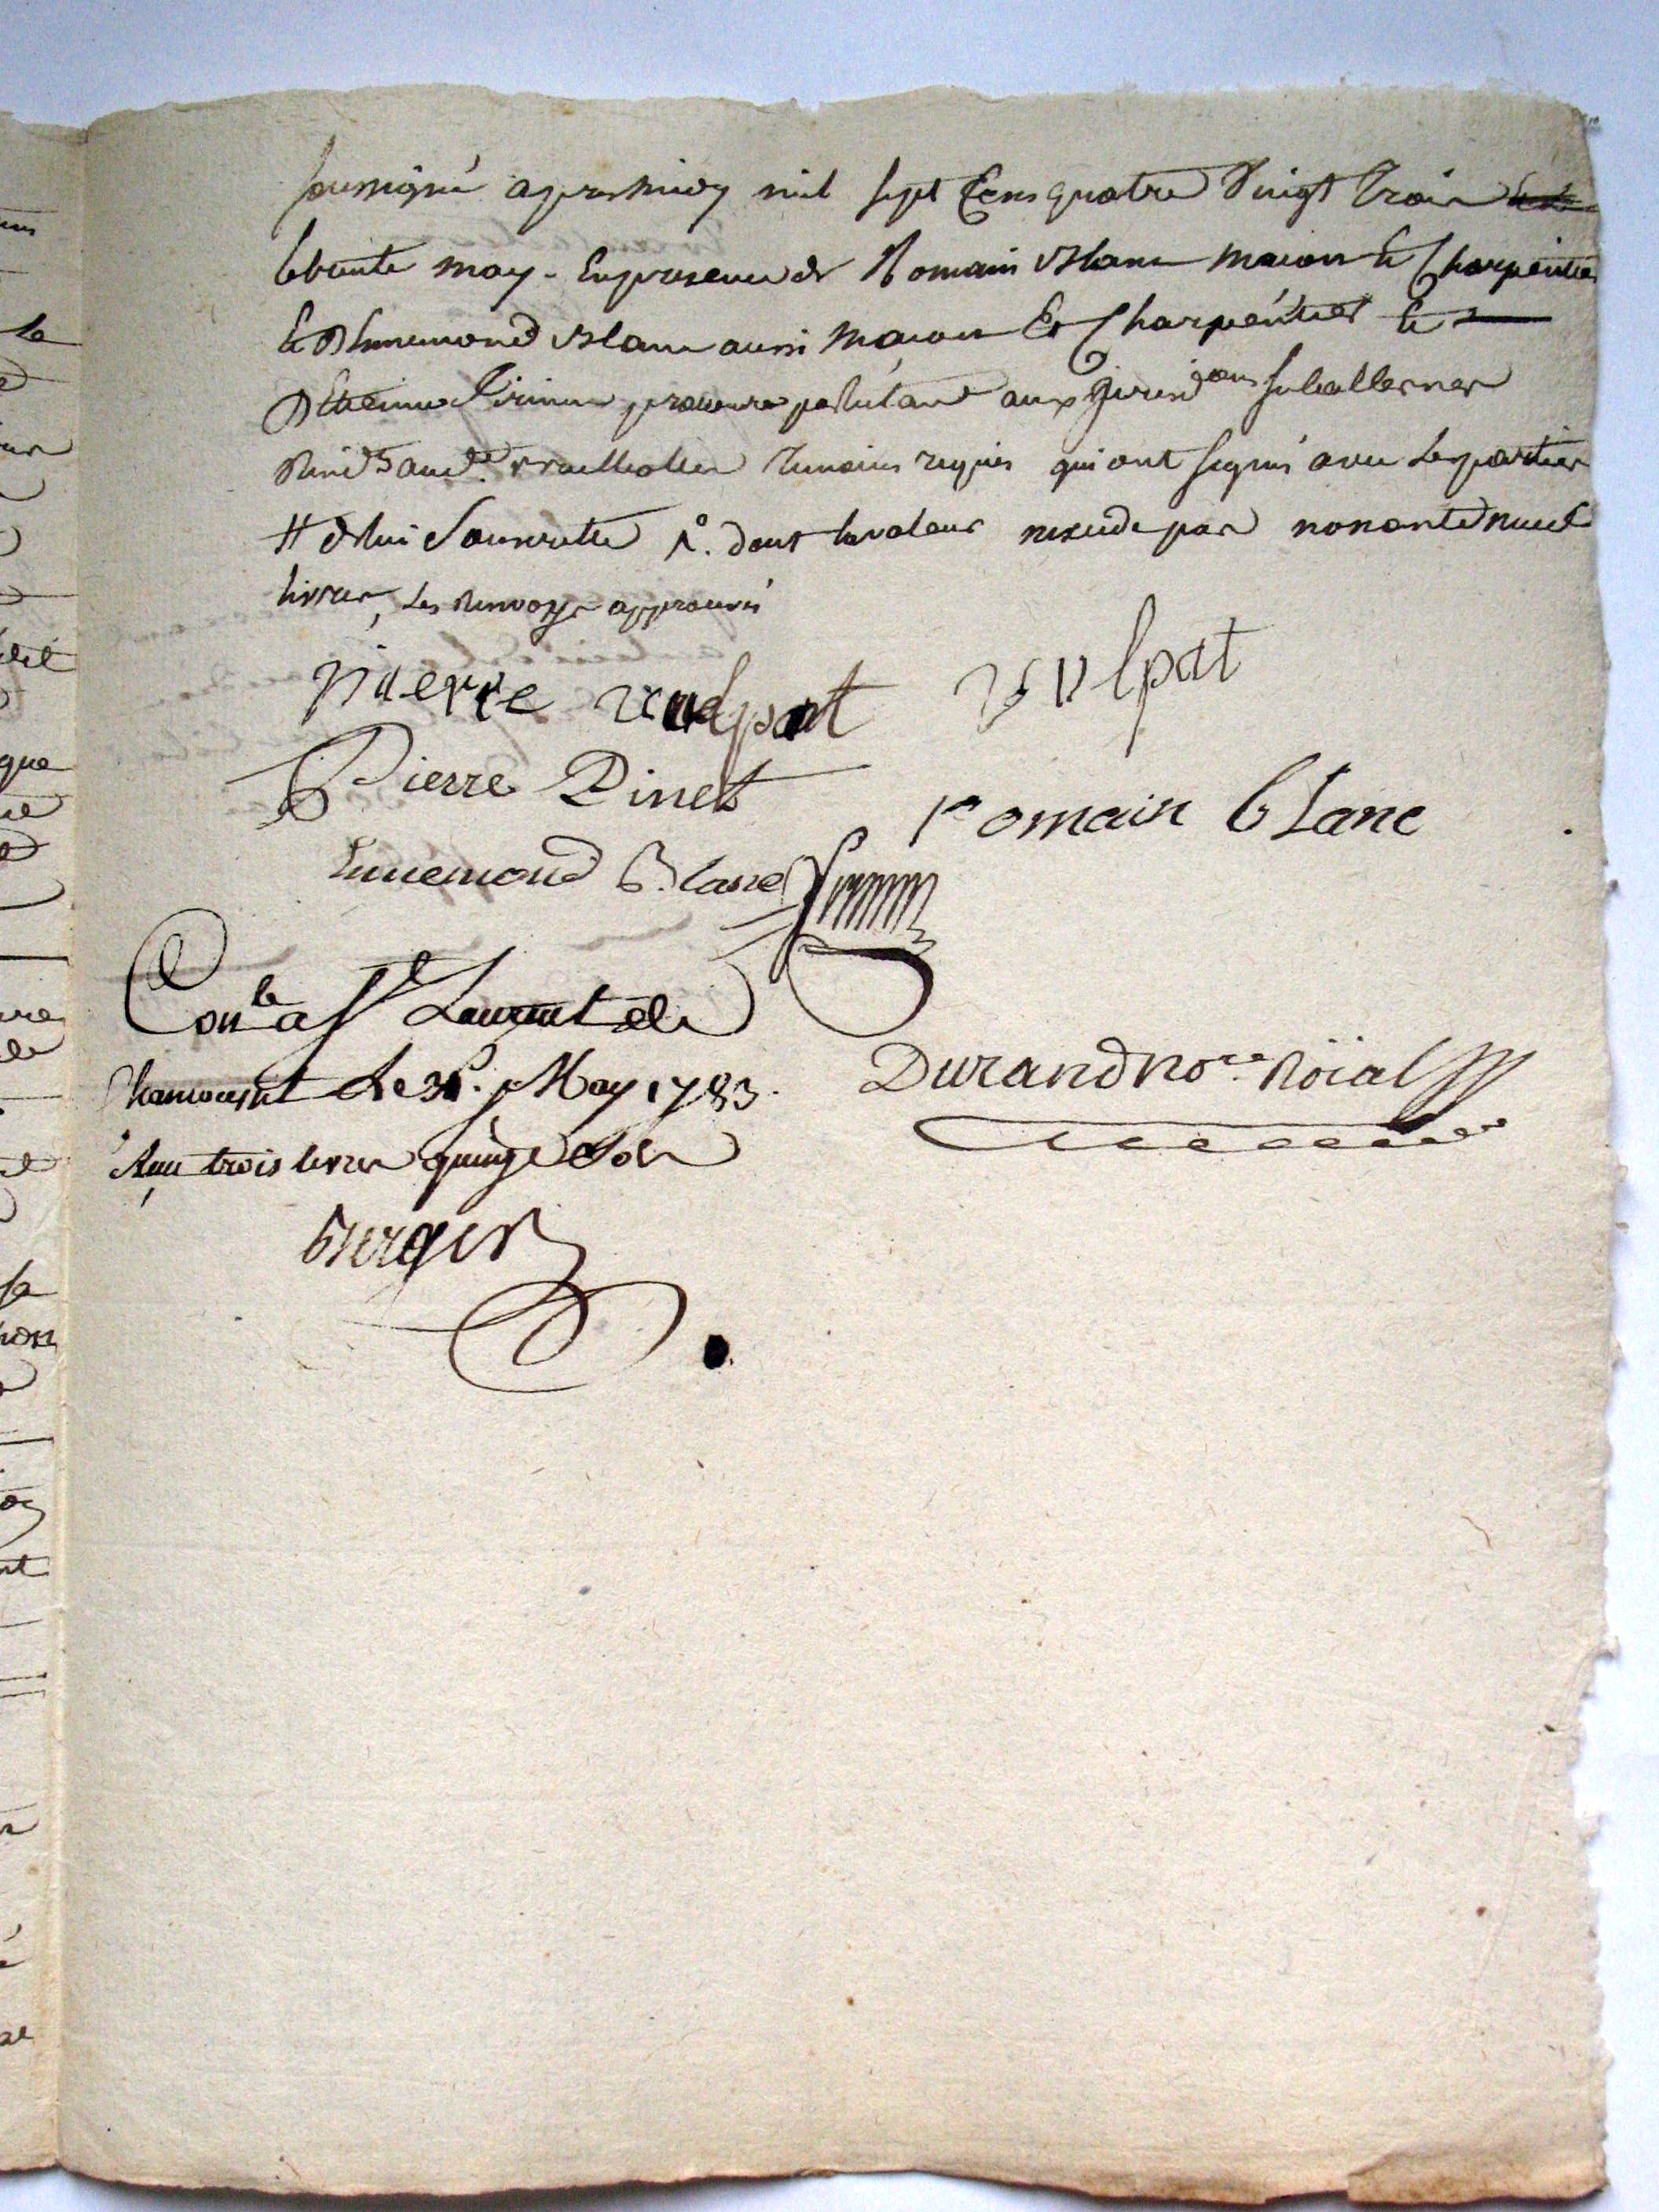 soussigné apres midy mil sept Cens quatre Vingt Trois
le trente may. En presence de Romain Blanc macon & Charpentier
& D'Ennemond Blanc aussi Macon & Charpentier &
D'Etienne procureur postulant aux Jurisd ons subalternes
Temoins requis qui ont signé avec les parties
# & lui Soumette 1°. dont la valeur n'excede pas nonante neuf
livres, les Renvoys approuvés
Pierre vulpat vulpat
Pierre Pinet
romain blanc
Ennemond Blanc
Conle a St Laurent de
Chamousset Le 31. May 1783.
Reçu trois livres quinze sols
Durand nore. Roïal